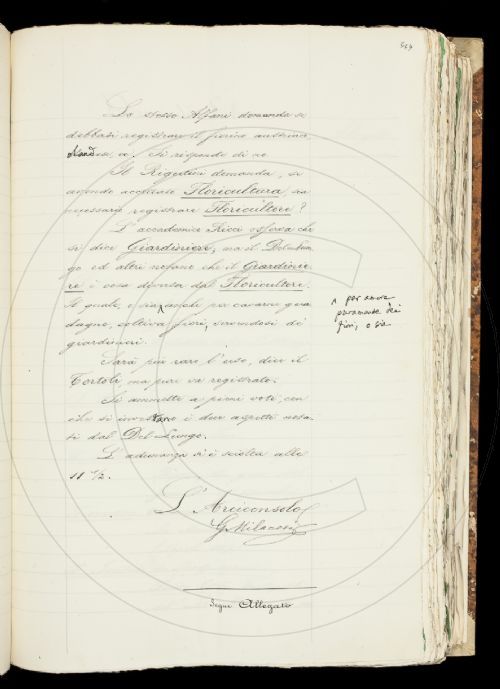 Lo stesso Alfani domanda se
debbasi registrare il fiorino austriaco
Si risponde di no.
Il Rigutini domanda, se
avendo accettato Floricultura, sia
necessario registrare Floricultore?
L'accademico Ricci osserva che
si dice Giardiniere, ma il Del Lun-
go ed altri notano che il Giardinie-
re è cosa diversa dal Floricultore.
Il quale, o sia anche per cavarne gua
dagno, coltiva fiori, servendosi di
giardinieri.
^ per amore
puramente dei
fiori, o sia
Sarà pur raro l'uso, dice il
Tortoli, ma pure va registrato.
Si ammette a pieni voti, con
che si i due aspetti nota-
ti dal Del Lungo.
L'adunanza si è sciolta alle
11 1/2.
L'Arciconsolo
G Milanesi
Segue Allegato